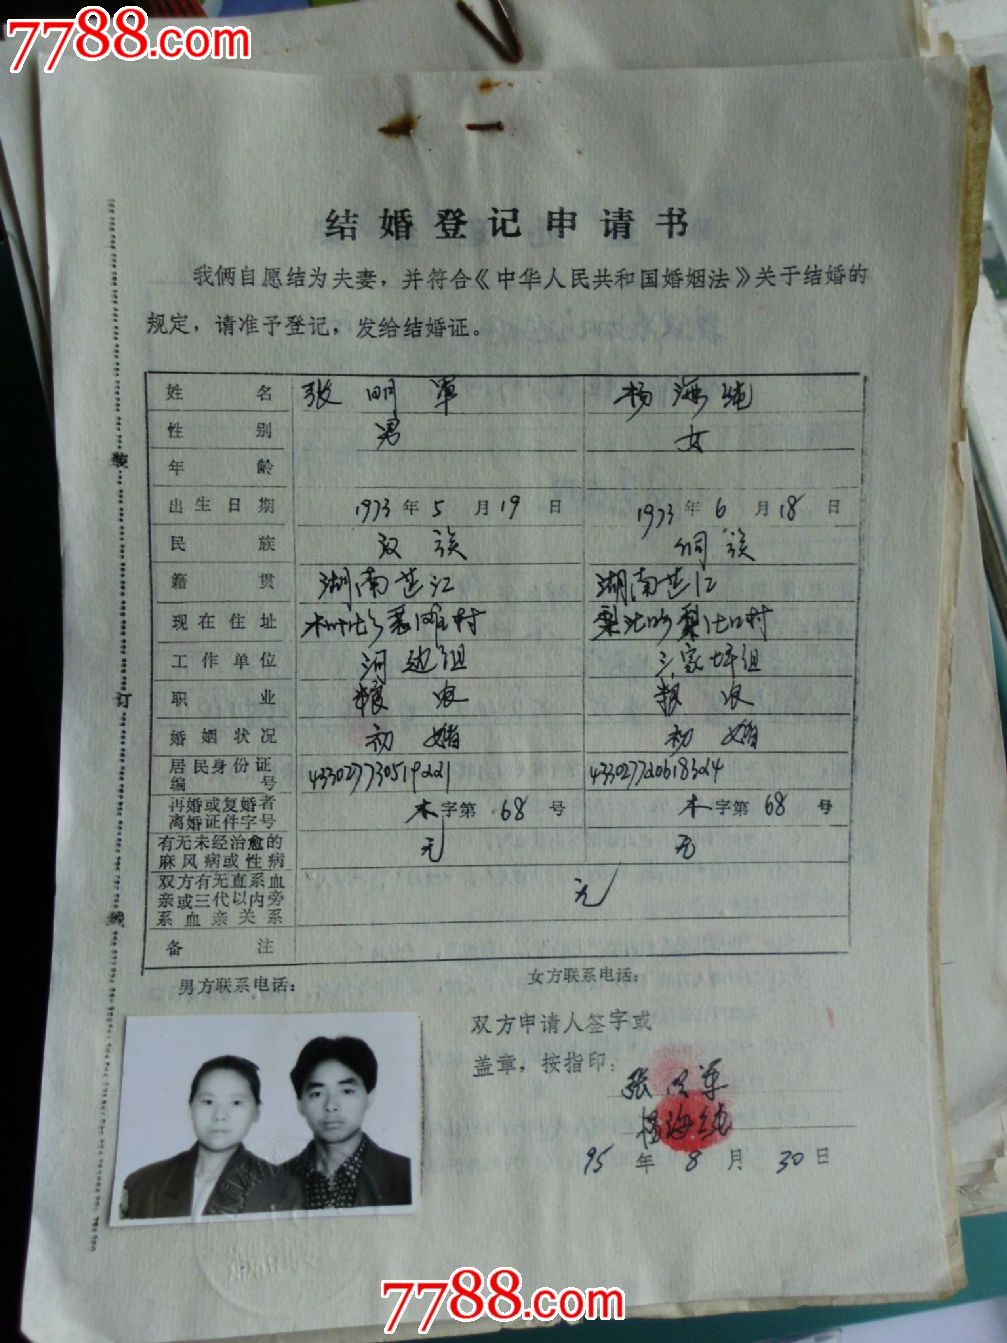 7788.com
7788.com
结婚登记申请书
我俩自愿结为夫妻，并符合《中华人民共和国婚姻法》关于结婚的
规定，请准予登记，发给结婚证。
姓名 张明军 杨海纯
性别 男 女
年龄
出生日期 1973年5月19日 1973年6月18日
民族 汉族 侗族
籍贯 湖南芷江 湖南芷江
现在住址 村 村
工作单位 河边组 家坪组
职业 粮农 粮农
婚姻状况 初婚 初婚
居民身份证
编号 433027730519221 433027720618324
再婚或复婚者
离婚证件字号 木字第68号 木字第68号
有无未经治愈的
麻风病或性病 无 无
双方有无直系血
亲或三代以内旁
系血亲关系 无
备注
装
订
线
男方联系电话： 女方联系电话：
双方申请人签字或
盖章，按指印： 张明军
杨海纯
95年8月30日
7788.com